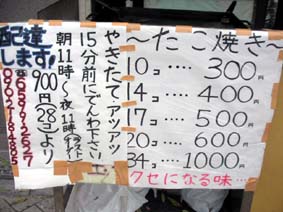 〜たこ焼き〜
10コ‥‥300円
14コ‥‥400円
17コ‥‥500円
20コ‥‥600円
34コ‥‥1000円
クセになる味‥‥
やきたて・アツアツ
15分前にでんわ下さい
朝11時〜夜11時
配達します!
900円(28コ)より